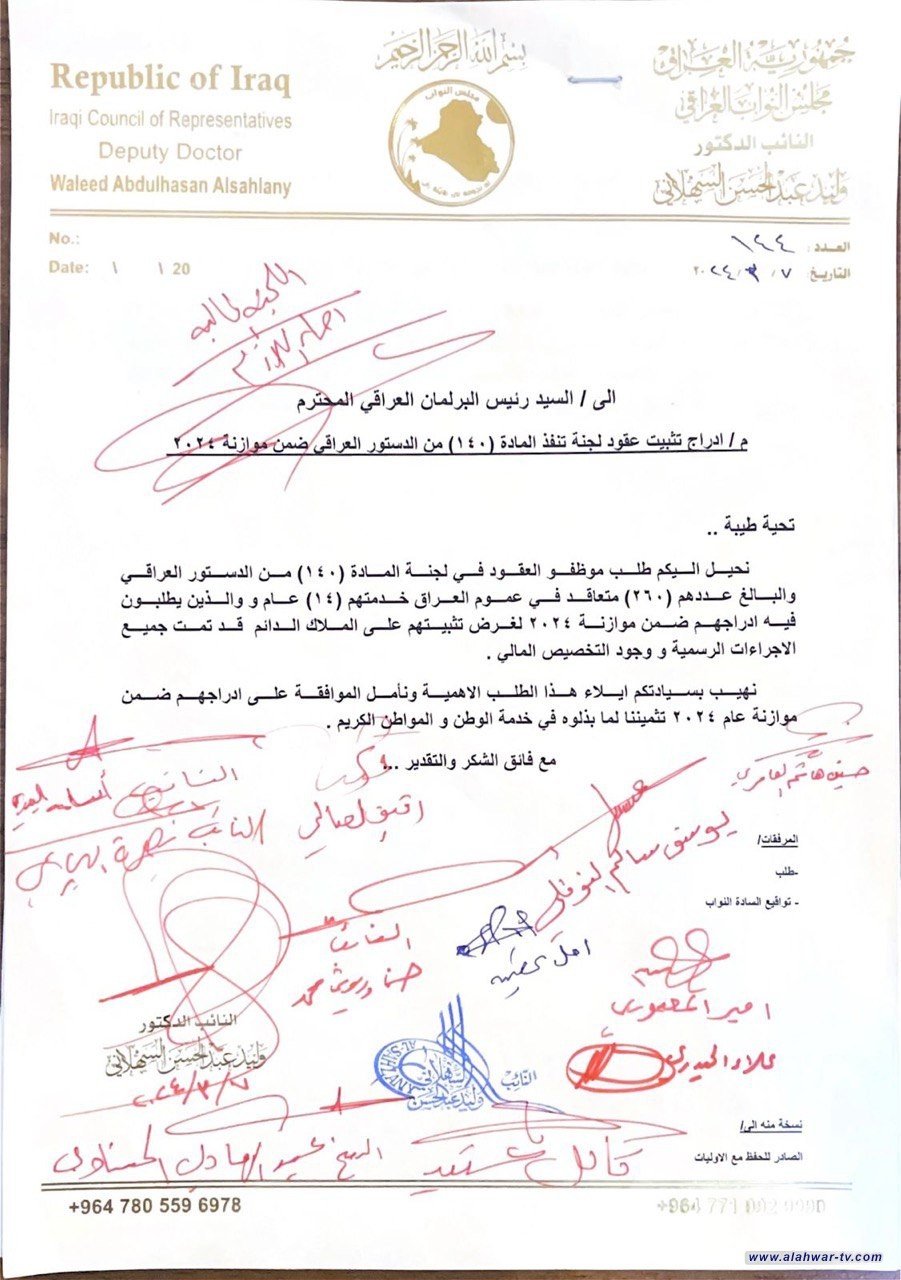 بسم الله الرحمن الرحيم
جمهورية العراق
مجلس النواب العراقي
النائب الدكتور
وليد عبد الحسن السهلاني
Republic of Iraq
Iraqi Council of Representatives
Deputy Doctor
Waleed Abdulhasan Alsahlany
مجلس النواب
العدد: ١٤٤
التاريخ: ٧ / ٣ / ٢٠٢٤
No.:
Date: \ \ 20
اللجنة المالية
الى / السيد رئيس البرلمان العراقي المحترم
م / ادراج تثبيت عقود لجنة تنفذ المادة (١٤٠) من الدستور العراقي ضمن موازنة ٢٠٢٤
تحية طيبة ..
نحيل اليكم طلب موظفو العقود في لجنة المادة (١٤٠) من الدستور العراقي
والبالغ عددهم (٢٦٠) متعاقد في عموم العراق خدمتهم (١٤) عام و والذين يطلبون
فيه ادراجهم ضمن موازنة ٢٠٢٤ لغرض تثبيتهم على الملاك الدائم قد تمت جميع
الاجراءات الرسمية و وجود التخصيص المالي .
نهيب بسيادتكم ايلاء هذا الطلب الاهمية ونأمل الموافقة على ادراجهم ضمن
موازنة عام ٢٠٢٤ تثميننا لما بذلوه في خدمة الوطن و المواطن الكريم .
مع فائق الشكر والتقدير ...
حسين هاشم العامري
النائب
رفيق الصالحي
النائب
المرفقات/
-طلب
- توافيع السادة النواب
يوسف سالم النوفلي
امل عطية
النائب
امير المعموري
علاء الحيدري
النائب الدكتور
وليد عبد الحسن السهلاني
٢٠٢٤/٣/٧
النائب
وليد عبد الحسن
السهلاني
نسخة منه الى/
الصادر للحفظ مع الاوليات
الشيخ عبد الهادي الحسناوي
+964 780 559 6978
+964 771 002 0900
www.alahwar-tv.com